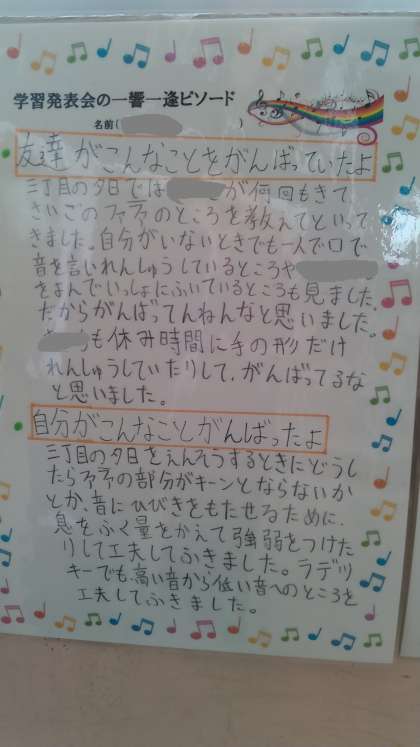 学習発表会の一響一逢ピソード
名前(
友達がこんなことをがんばっていたよ
三丁目の夕日では が何回もきて
さいごのファラのところを教えてといって
きました。自分がいないときでも一人で口で
音を言いれんしゅうしているところや
をよんでいっしょにふいているところも見ました。
だからがんばってんねんなと思いました。
も休み時間に手の形だけ
れんしゅうしていたりして、がんばってるな
と思いました。
自分がこんなことがんばったよ
三丁目の夕日をえんそうするときにどうし
たらファラの部分がキーンとならないか
とか、音にひびきをもたせるために、
息をふく量をかえて強弱をつけた
りして工夫してふきました。ラデツ
キーでも、高い音から低い音へのところを
工夫してふきました。